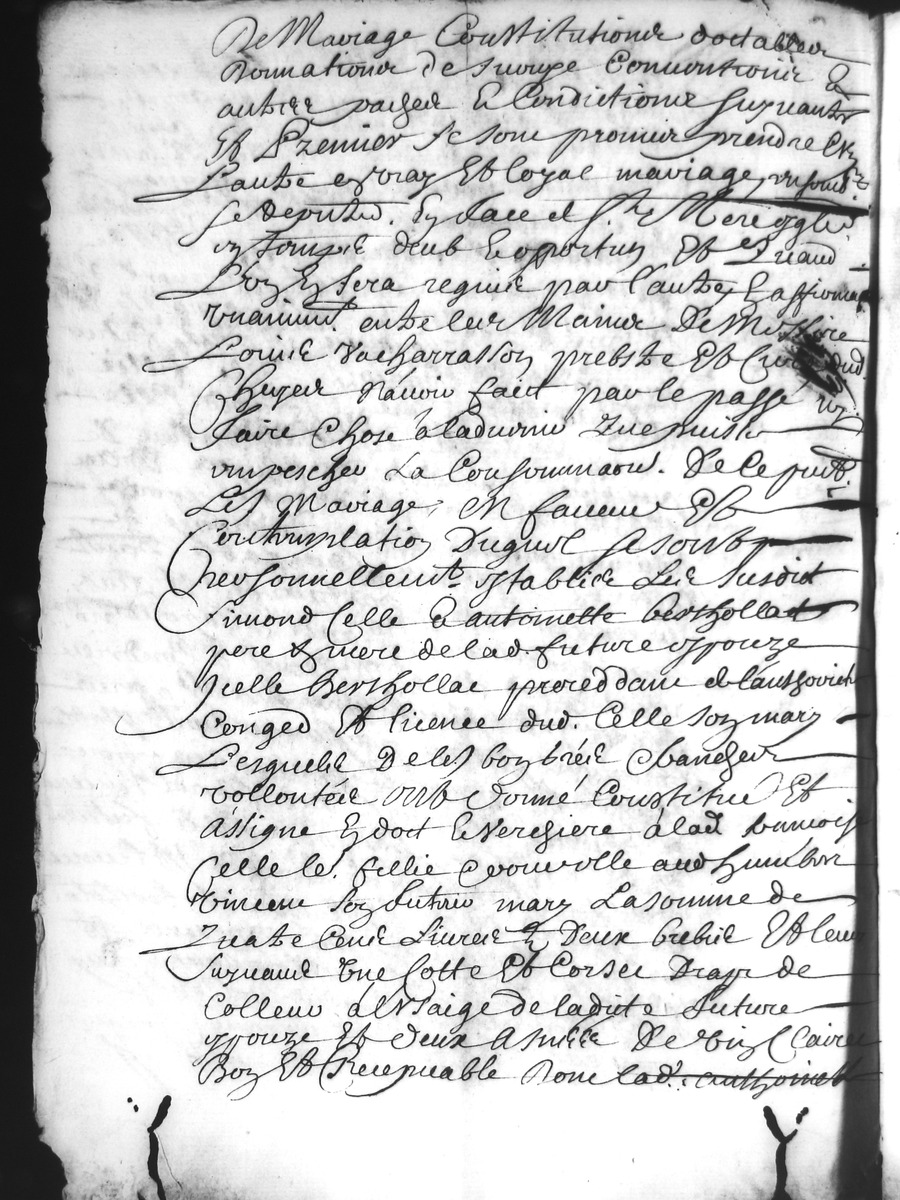 De Mariage Constitutions doctalles
Donnations de survye Conventions &
aultres pasches & Condictions suyvantes
Et Premier se sont promis prendre l'ung
L'aultre en vray Et loyal mariage
se deputed. En face de Ste Mere esglise
en temps deub & opportun Et quand
L'ung En sera requis par l'aultre
unanimt. entre les Mains De Messire
Louis Vacharrasson prebstre Et Curé dud.
n'avoir faict par le passé ny
faire Chose a ladvenir que puisse
empescher La Consommaon. De Ce pnt.
Mariage, En faveur Et
Contemplation Duquel se sont
personnellemt. establies Les susdict
Simond Celle & antoinette berthollat
pere & mere de lad. future espouze
Icelle berthollat proceddant de l'authorité
Conged Et licence dud. Celle son mary
Lesquels De les bon
vollontés ont donné Constitué Et
Assigne En doct & Verchiere a lad.
Celle le. fillie & aud humbert
vincent son futur mary La somme de
Quatre Cents Livres & Deux brebis Et leur
suyvant Une Cotte Et Corset Drapt de
Colleur a l'Usaige de ladicte future
espouze Et deux Asnées De vin Clairet
Bon Et Recepvable Donc lad. anthoinette